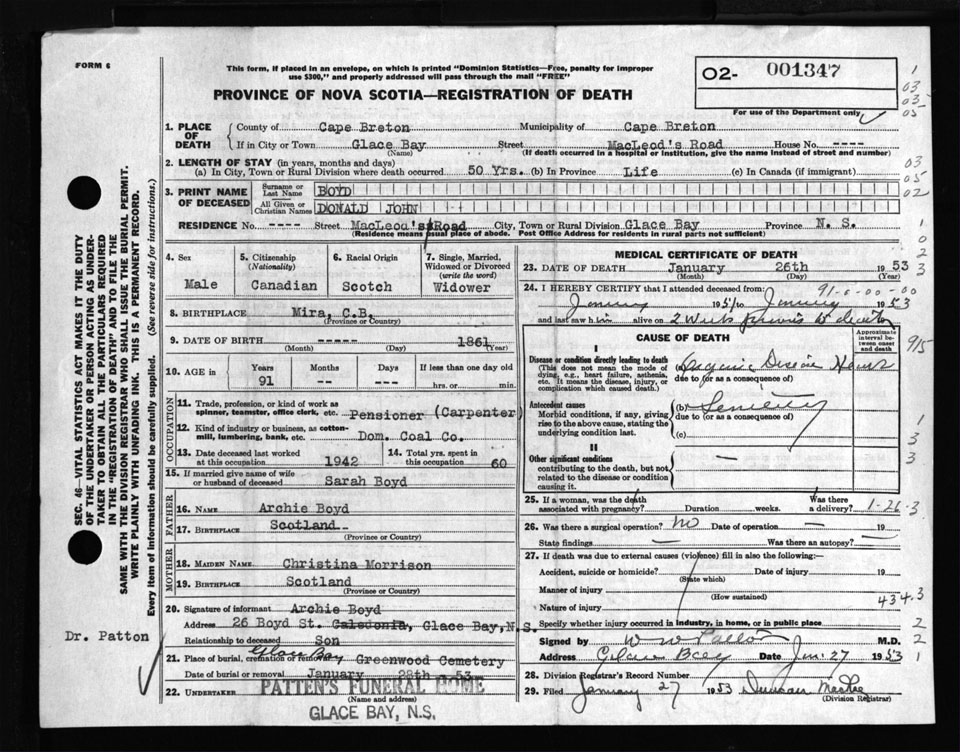 FORM 6
This form, if placed in an envelope, on which is printed "Dominion Statistics—Free, penalty for improper
use $300," and properly addressed will pass through the mail "FREE"
PROVINCE OF NOVA SCOTIA—REGISTRATION OF DEATH
O2- 001347
For use of the Department only
1. PLACE OF DEATH
County of Cape Breton Municipality of Cape Breton
If in City or Town Glace Bay Street MacLeod's Road House No. ----
(Name) (If death occurred in a hospital or institution, give the name instead of street and number)
2. LENGTH OF STAY (in years, months and days)
(a) In City, Town or Rural Division where death occurred 50 Yrs. (b) In Province Life (c) In Canada (if immigrant)
3. PRINT NAME OF DECEASED
Surname or Last Name BOYD
All Given or Christian Names DONALD JOHN
RESIDENCE No. ---- Street MacLeod's Road City, Town or Rural Division Glace Bay Province N. S.
(Residence means usual place of abode. Post Office Address for residents in rural parts not sufficient)
4. Sex Male
5. Citizenship (Nationality) Canadian
6. Racial Origin Scotch
7. Single, Married, Widowed or Divorced (write the word) Widower
8. BIRTHPLACE Mira, C.B.
(Province or Country)
9. DATE OF BIRTH ----- 1861
(Month) (Day) (Year)
10. AGE in Years Months Days If less than one day old
91 -- --- hrs. or min.
OCCUPATION
11. Trade, profession, or kind of work as spinner, teamster, office clerk, etc. Pensioner (Carpenter)
12. Kind of industry or business, as cotton-mill, lumbering, bank, etc. Dom. Coal Co.
13. Date deceased last worked at this occupation 1942
14. Total yrs. spent in this occupation 60
15. If married give name of wife or husband of deceased Sarah Boyd
FATHER
16. NAME Archie Boyd
17. BIRTHPLACE Scotland
(Province or Country)
MOTHER
18. MAIDEN NAME Christina Morrison
19. BIRTHPLACE Scotland
(Province or Country)
20. Signature of informant Archie Boyd
Address 26 Boyd St. Caledonia, Glace Bay, N.S.
Relationship to deceased Son
21. Place of burial, cremation or removal Glace Bay Greenwood Cemetery
Date of burial or removal January 28th 53
22. UNDERTAKER PATTEN'S FUNERAL HOME
(Name and address)
GLACE BAY, N.S.
MEDICAL CERTIFICATE OF DEATH
23. DATE OF DEATH January 26th 1953
(Month) (Day) (Year)
91-0-00-00
24. I HEREBY CERTIFY that I attended deceased from:
January 1951 to January 1953
and last saw him alive on 2 weeks previous to death
CAUSE OF DEATH
Approximate interval between onset and death
I
Disease or condition directly leading to death
(This does not mean the mode of dying, e.g., heart failure, asthenia, etc. It means the disease, injury, or complication which caused death.)
(a) Organic Disease Heart
due to (or as a consequence of)
Antecedent causes
Morbid conditions, if any, giving rise to the above cause, stating the underlying condition last.
(b) Senility
due to (or as a consequence of)
(c)
II
Other significant conditions
contributing to the death, but not related to the disease or condition causing it.
25. If a woman, was the death associated with pregnancy? Duration weeks. Was there a delivery?
1-26-3
26. Was there surgical operation? No Date of operation — 19
State findings — Was there an autopsy? —
27. If death was due to external causes (violence) fill in also the following:—
Accident, suicide or homicide? Date of injury 19
(State which)
Manner of injury
(How sustained)
Nature of injury
434.3
Specify whether injury occurred in industry, in home, or in public place
Signed by W W Patton M.D.
Address Glace Bay Date Jan: 27 1953
28. Division Registrar's Record Number
29. Filed January 27 1953 Duncan MacRae
(Division Registrar)
SEC. 46—VITAL STATISTICS ACT MAKES IT THE DUTY
OF THE UNDERTAKER OR PERSON ACTING AS UNDER-
TAKER TO OBTAIN ALL THE PARTICULARS REQUIRED
IN THE "REGISTRATION OF DEATH" AND TO FILE THE
SAME WITH THE DIVISION REGISTRAR WHO SHALL ISSUE THE BURIAL PERMIT.
WRITE PLAINLY WITH UNFADING INK. THIS IS A PERMANENT RECORD.
Every item of information should be carefully supplied. (See reverse side for instructions.)
Dr. Patton
1
03
03
05
03
05
02
1
0
2
3
915
1
3
3
2
2
1